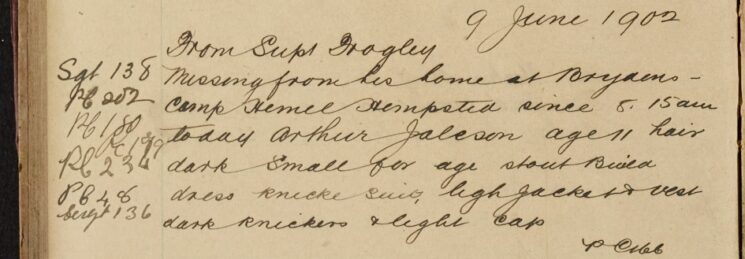 9 June 1902
From Supt Frogley
Sgt 138
Missing from his home at Brydens-
PC 202
Camp Hemel Hempsted since 8. 15am
PC 180
PC 199
today Arthur age 11 hair
PC 236
dark Small for age stout Build
PC 48
dress knicke Suit, ligh Jacket & vest
Sergt 136
dark knickers & light Cap